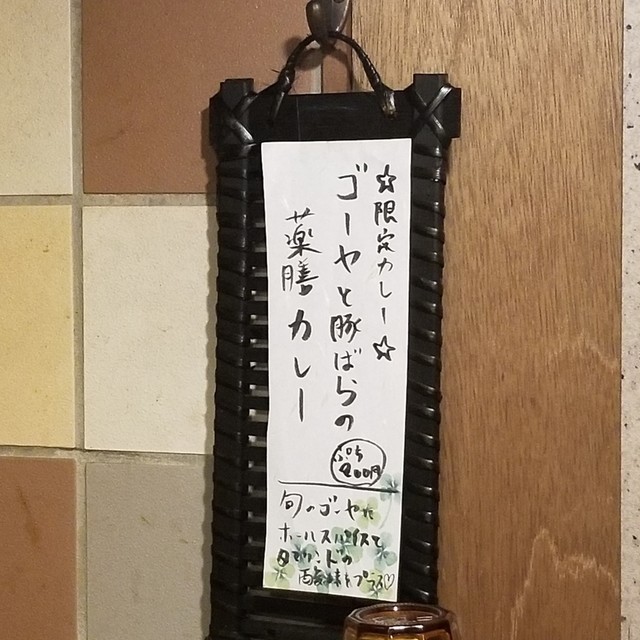 ☆限定カレー☆
ゴーヤと豚ばらの
薬膳カレー
ぷち
200円
旬のゴーヤに
ホールスパイスと
タマリンドの
酸味をプラス♡